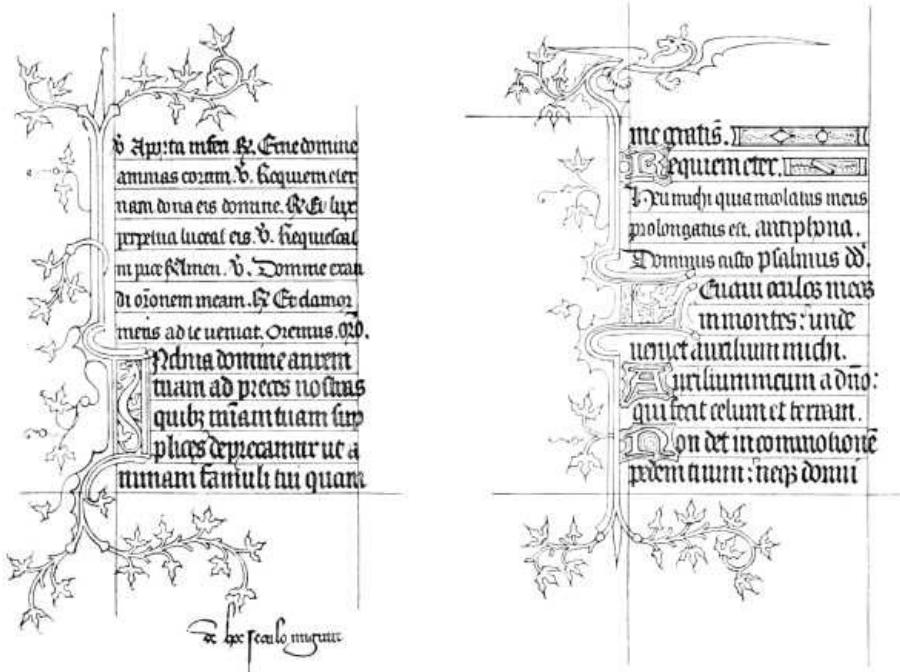 V̄. A porta inferi. R̄. Erue domine
animas eorum. V̄. Requiem eter
nam dona eis domine. R̄ Et lux
perpetua luceat eis. V̄. Requiescat
in pace R̄ Amen. V̄. Domine exau
di or̄onem meam. R̄ Et clamor
meus ad te ueniat. Oremus. Or̄o.
Inclina domine aurem
tuam ad preces nostras
quibꝫ mīam tuam sup
plices deprecamur ut a
nimam famuli tui quam
de hoc seculo
me gratis.
Requiem eter.
Heu michi quia incolatus meus
prolongatus est. antiphona.
Dominus custo psalmus dd̄.
Leuaui oculos meos
in montes: unde
ueniet auxilium michi.
Auxilium meum a dn̄o:
qui fecit celum et terram.
Non det in commotionē
pedem tuum: neqꝫ dormi